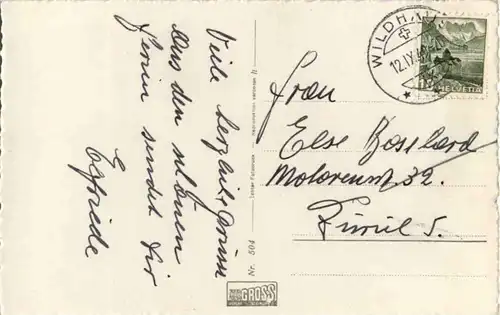 Viele herzliche Grüsse
Aus den schönen
Ferien sendet Dir
Elfriede
Nr. 504
GROSS
WILDHA
12.IX
HELVETIA
Frau
Else Bosshard
32.
Zürich 5.